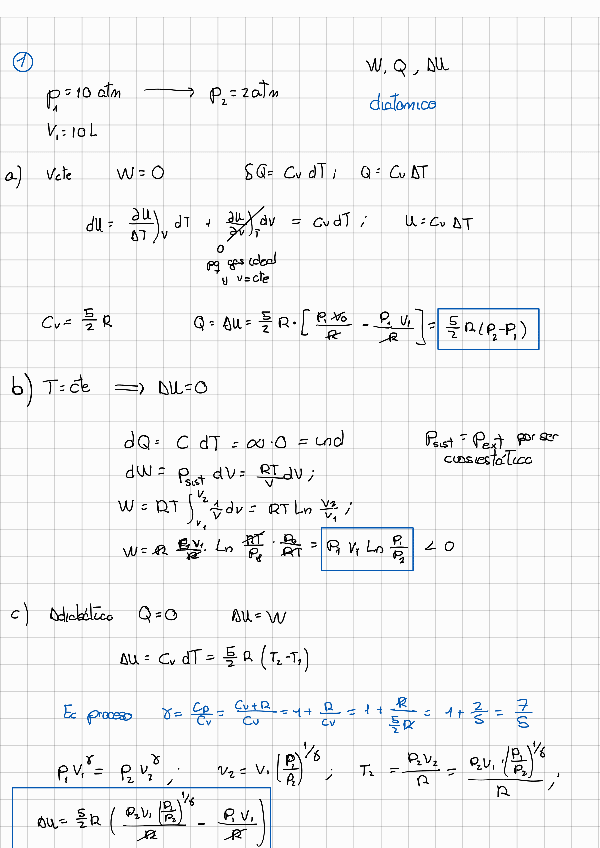 1
P₁ = 10 atm ⟶ P₂ = 2 atm
W, Q, ΔU
diatomico
V₁ = 10 L
a) Vcte W = 0 δQ = Cv dT ; Q = Cv ΔT
dU = ∂U/ΔT)v dT + ∂U/∂V)T dV = Cv dT ; U = Cv ΔT
0
pq gas ideal
y v = cte
Cv = 5/2 R Q = ΔU = 5/2 R · [P₁ V₀/R - P₁ V₁/R] = 5/2 R (P₂ - P₁)
b) T = cte ⟹ ΔU = 0
dQ = C dT = ∞·0 = ind
Psist = Pext por ser
cuasiestático
dW = Psist dV = RT/V dV ;
W = RT ∫V₁^V₂ 1/V dv = RT Ln V₂/V₁ ;
W = R P₁V₁/R · Ln RT/P₂ · P₁/RT = P₁ V₁ Ln P₁/P₂ < 0
c) Adiabático Q = 0 ΔU = W
ΔU = Cv dT = 5/2 R (T₂ - T₁)
Ec proceso γ = Cp/Cv = Cv+R/Cv = 1 + R/Cv = 1 + R/(5/2 R) = 1 + 2/5 = 7/5
P₁V₁^γ = P₂ V₂^γ ; V₂ = V₁ (P₁/P₂)^1/γ ; T₂ = P₂V₂/R = P₂V₁ (P₁/P₂)^1/γ / R ;
ΔU = 5/2 R (P₂V₁ (P₁/P₂)^1/γ / R - P₁ V₁/R)